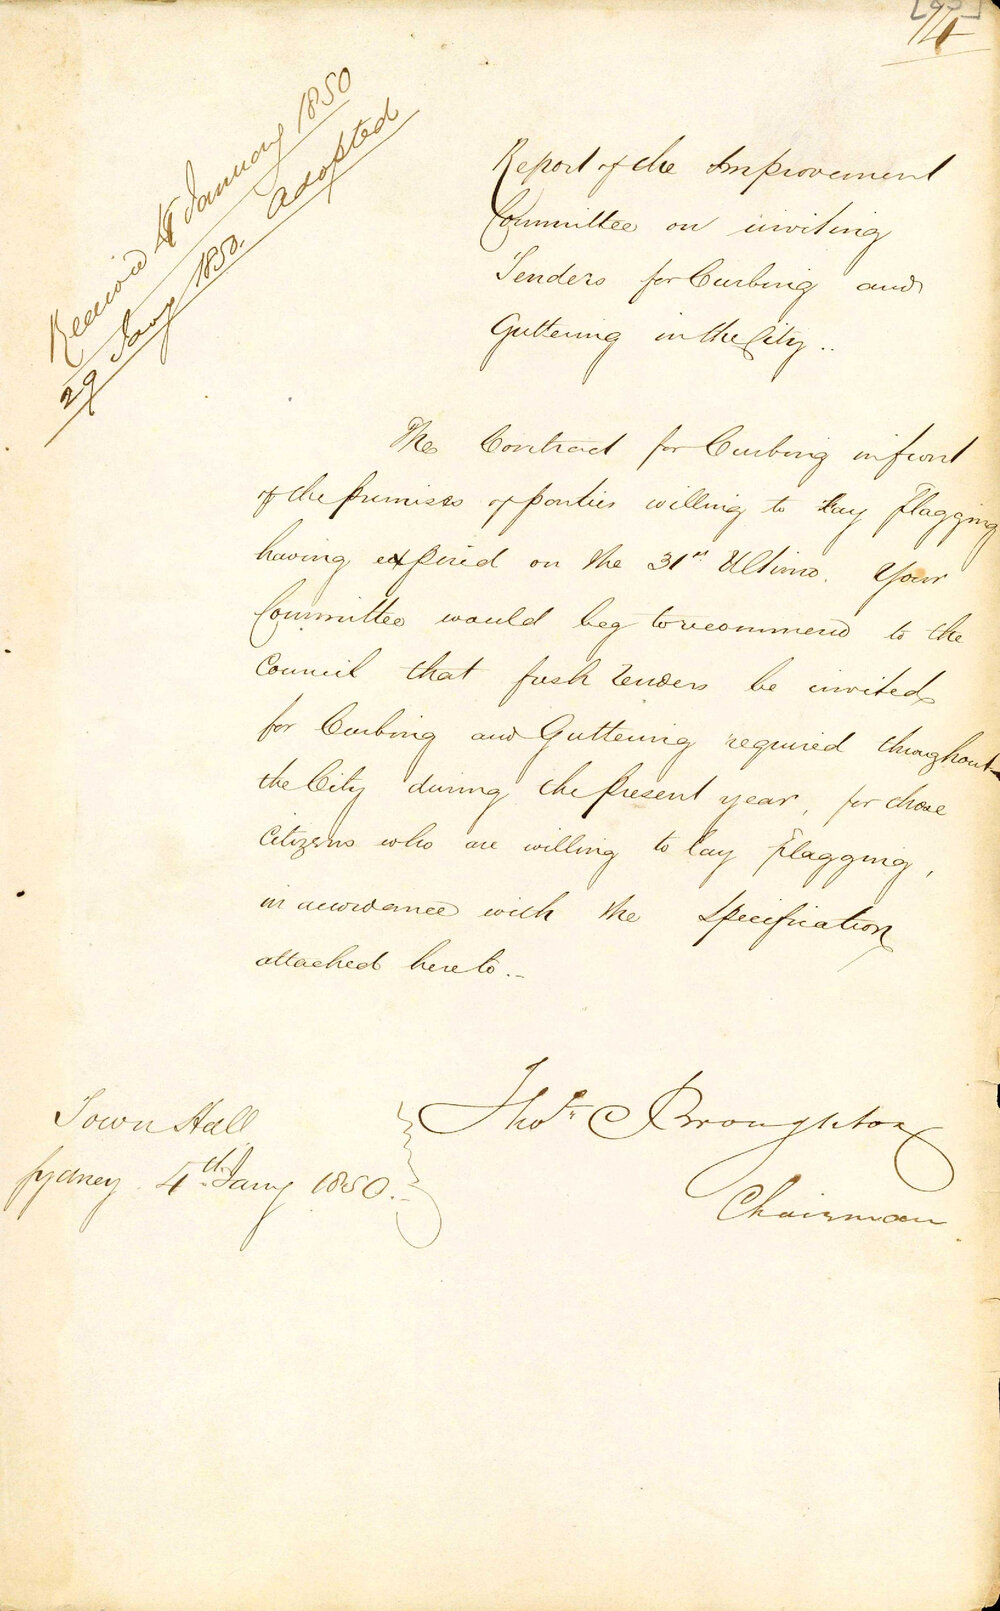 Received 4 January 1850
29 Jany 1850. Adopted
Report of the Improvement
Committee on inviting
Tenders for Curbing and
Guttering in the City..
The Contract for Curbing in front
of the premises of parties willing to lay Flagging
having expired on the 31st Ultimo. Your
Committee would beg to recommend to the
Council that fresh Tenders be invited
for Curbing and Guttering required throughout
the City during the present year, for those
Citizens who are willing to lay Flagging,
in accordance with the Specification
attached hereto..
Thos. C Broughton
Chairman
Town Hall
Sydney 4th Jany 1850..